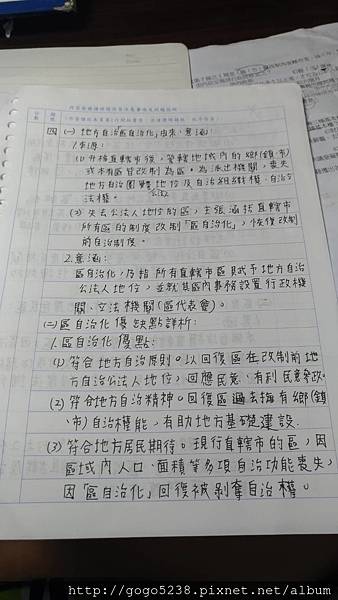 四 (一)「地方自治區自治化」由來、意涵:
1.來源:
(1)升格直轄市後,管轄地域內的鄉(鎮、市)
或市有區皆改制為區。為派出機關,喪失
地方自治團體地位及自治組織權、自治立
公法人
法權。
(2)失去公法人地位的區,主張涵括直轄市
所有區的制度改制「區自治化」,恢復改制
前自治制度。
2.意涵:
區自治化,乃指所有直轄市區賦予地方自治
公法人地位,並就其區內事務設置行政機
關、立法機關(區代表會)。
(二)區自治化優缺點評析:
1.區自治化優點:
(1)符合地方自治原則。以回復區在改制前地
方自治公法人地位,回應民意、有利民意參政。
(2)符合地方自治精神。回復區過去擁有鄉(鎮
、市)自治權能,有助地方基礎建設.
(3)符合地方居民期待。現行直轄市的區,因
區域內人口、面積等多項自治功能喪失,
因「區自治化」回復被剝奪自治權。
http://gogo5238.pixnet.net/album